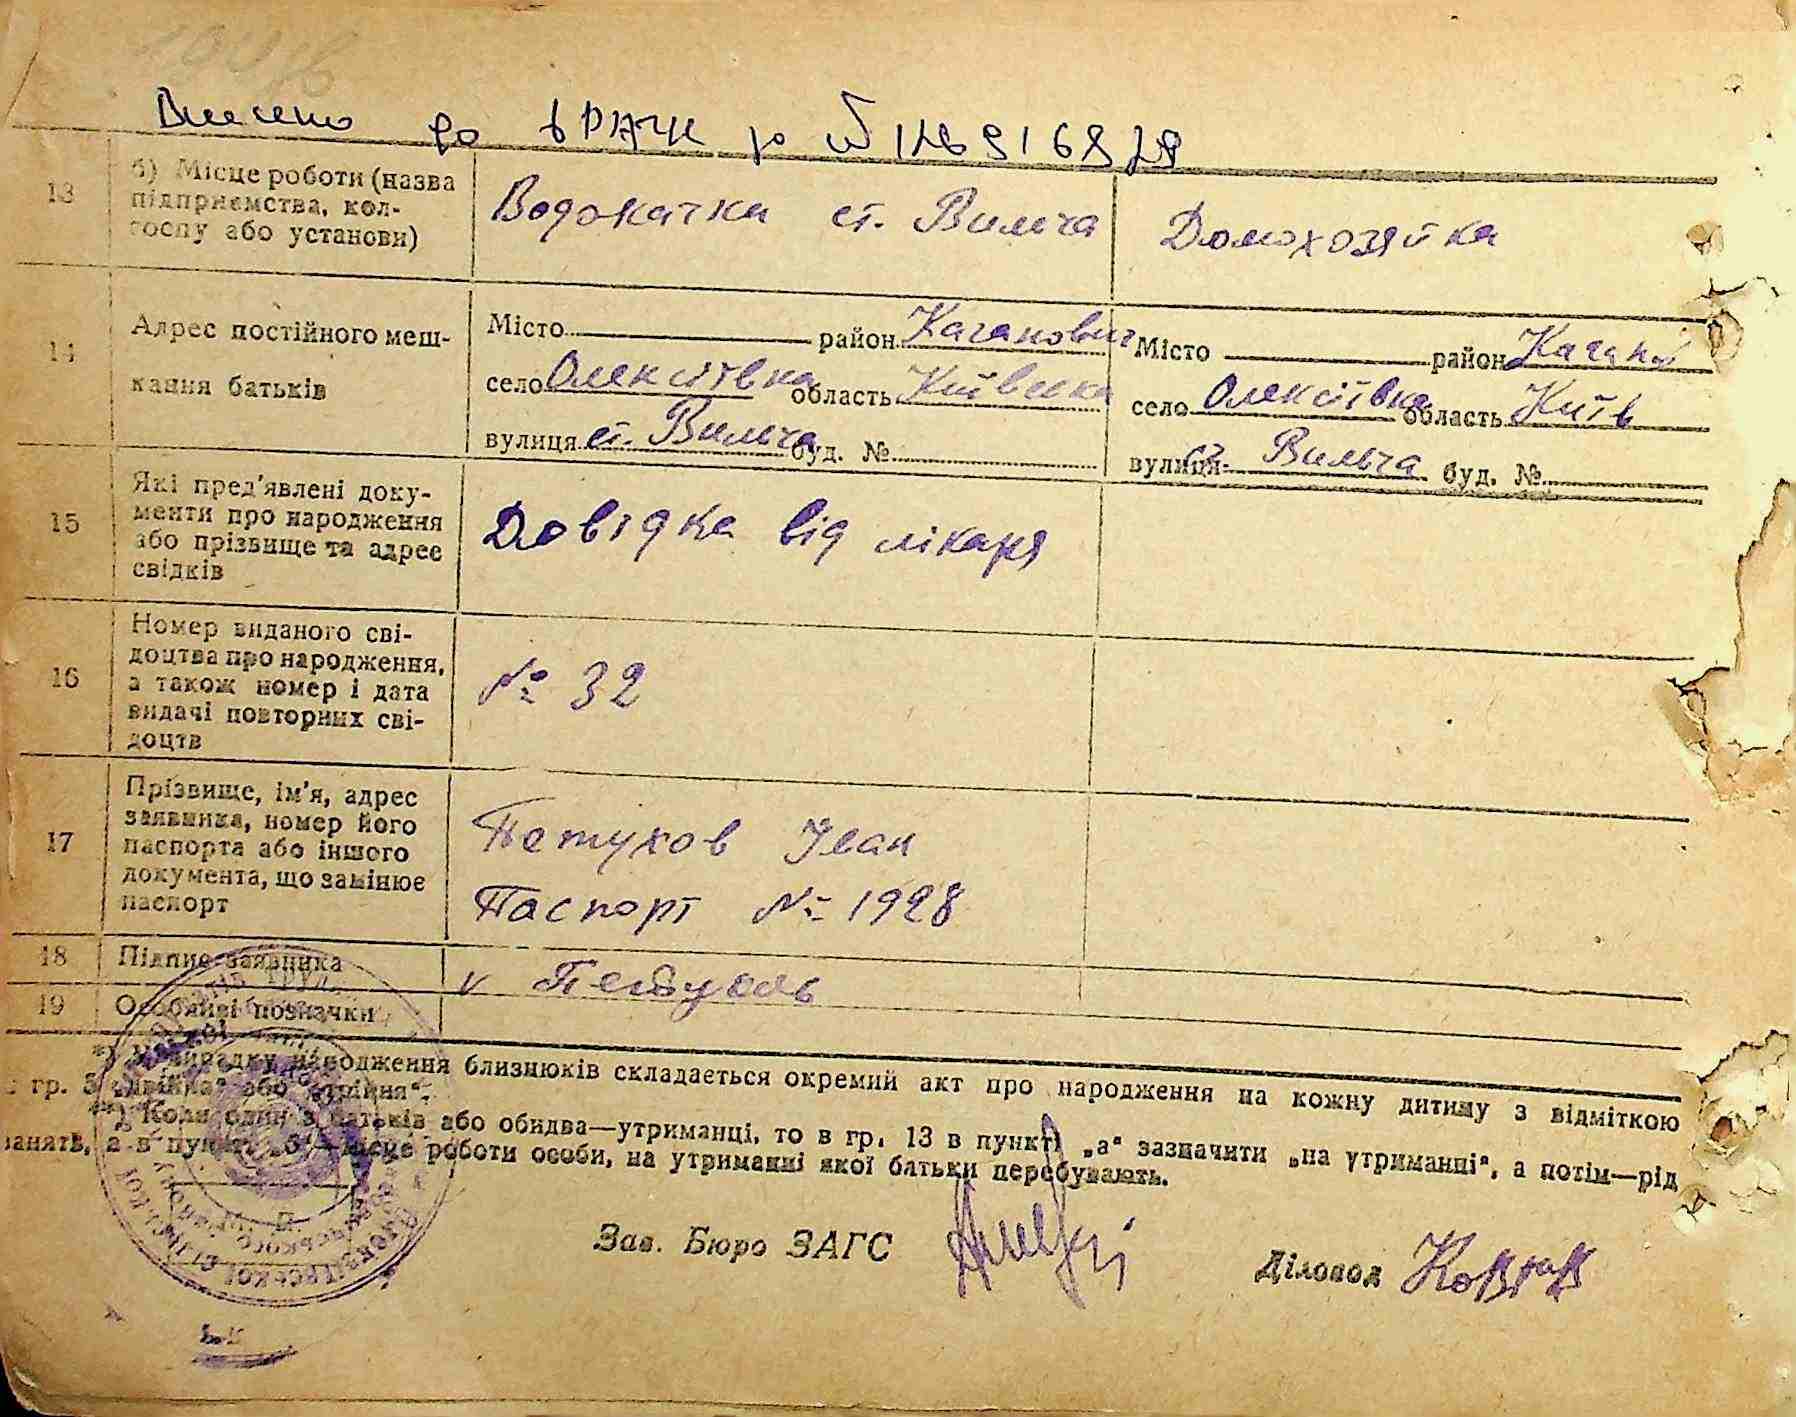 Внесено до ДРАЦС за №
13 б) Місце роботи (назва підприємства, колгоспу або установи) Водокачка ст. Вильча Домохозяйка
14 Адрес постійного мешкання батьків
Місто район Каганович Місто район Кагань
село Олексіївка область Київська село Олексіївка область Київ
вулиця ст. Вильча буд. № вулиця ст Вильча буд. №
15 Які пред'явлені документи про народження або прізвище та адрес свідків Довідка від лікаря
16 Номер виданого свідоцтва про народження, а також номер і дата видачі повторних свідоцтв № 32
17 Прізвище, ім'я, адрес заявника, номер його паспорта або іншого документа, що замінює паспорт Петухов Іван
Паспорт № 1928
18 Підпис заявника
19 Особливі позначки
*) У випадку народження близнюків складається окремий акт про народження на кожну дитину з відміткою
в гр. 3 „двійня“ або „трійня“.
**) Коли один з батьків або обидва—утриманці, то в гр. 13 в пункті „а“ зазначити „на утриманні“, а потім—рід
занять, а в пункті „б“—місце роботи особи, на утриманні якої батьки перебувають.
Зав. Бюро ЗАГС Діловод